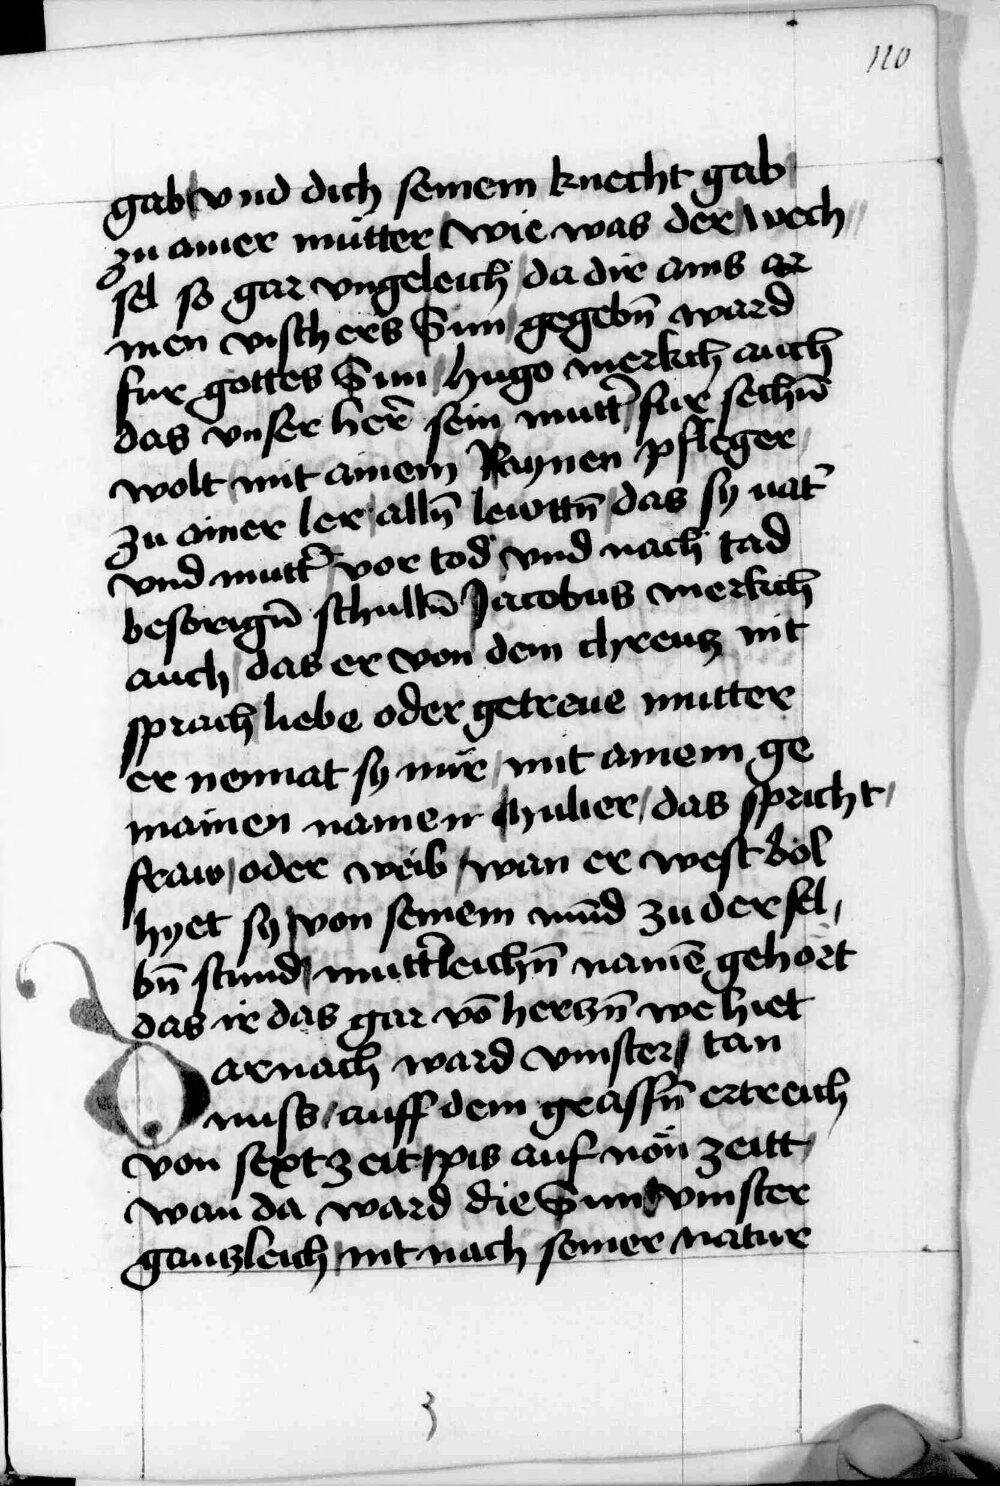 110
gab / vnd dich seinem knecht gab /
zu ainer mutter / wie was der / wech //
sel so gar vngeleich / da dir ains ar
men vischers Sun / gegebn̄ ward
fur gottes Sun / hugo merkch auch
das vnser her̄ sein mutt̉ / fur sechn̄
wolt / mit ainem Raynen pfleger /
zu ainer ler / alln̄ lewttn̄ / das sy vat̉
vnd mutt̉ / vor tod / vnd nach tad
besorign̄ schulln̄ Jacobus merkch
auch / das er von dem chreutz nit
sprach / liebe oder getreue mutter
er nennat sy nür / mit ainem ge
mainen namen / mulier / das spricht /
fraw / oder weib / wan er west bol
hyet sy / von seinem mūd zu der sel /
bn̄ stund / mutt̉leichn̄ namē gehört
das ir das gar vō herczn̄ we hiet
Darnach ward vinster / tan
nuss / auff dem grassn̄ ertreich
von sext zeit / pis auf nön zeitt /
wan da ward die Sunn vinster
gantzleich / nit nach seiner natur
3